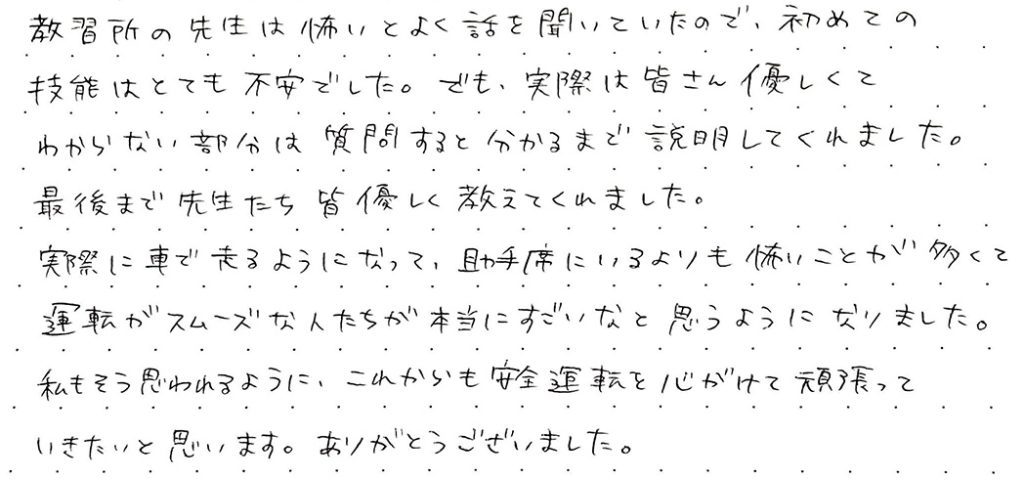 教習所の先生は怖いとよく話を聞いていたので、初めての
技能はとても不安でした。でも、実際は皆さん優しくて
わからない部分は質問すると分かるまで説明してくれました。
最後まで先生たち皆優しく教えてくれました。
実際に車で走るようになって、助手席にいるよりも怖いことが多くて
運転がスムーズな人たちが本当にすごいなと思うようになりました。
私もそう思われるように、これからも安全運転を心がけて頑張って
いきたいと思います。ありがとうございました。